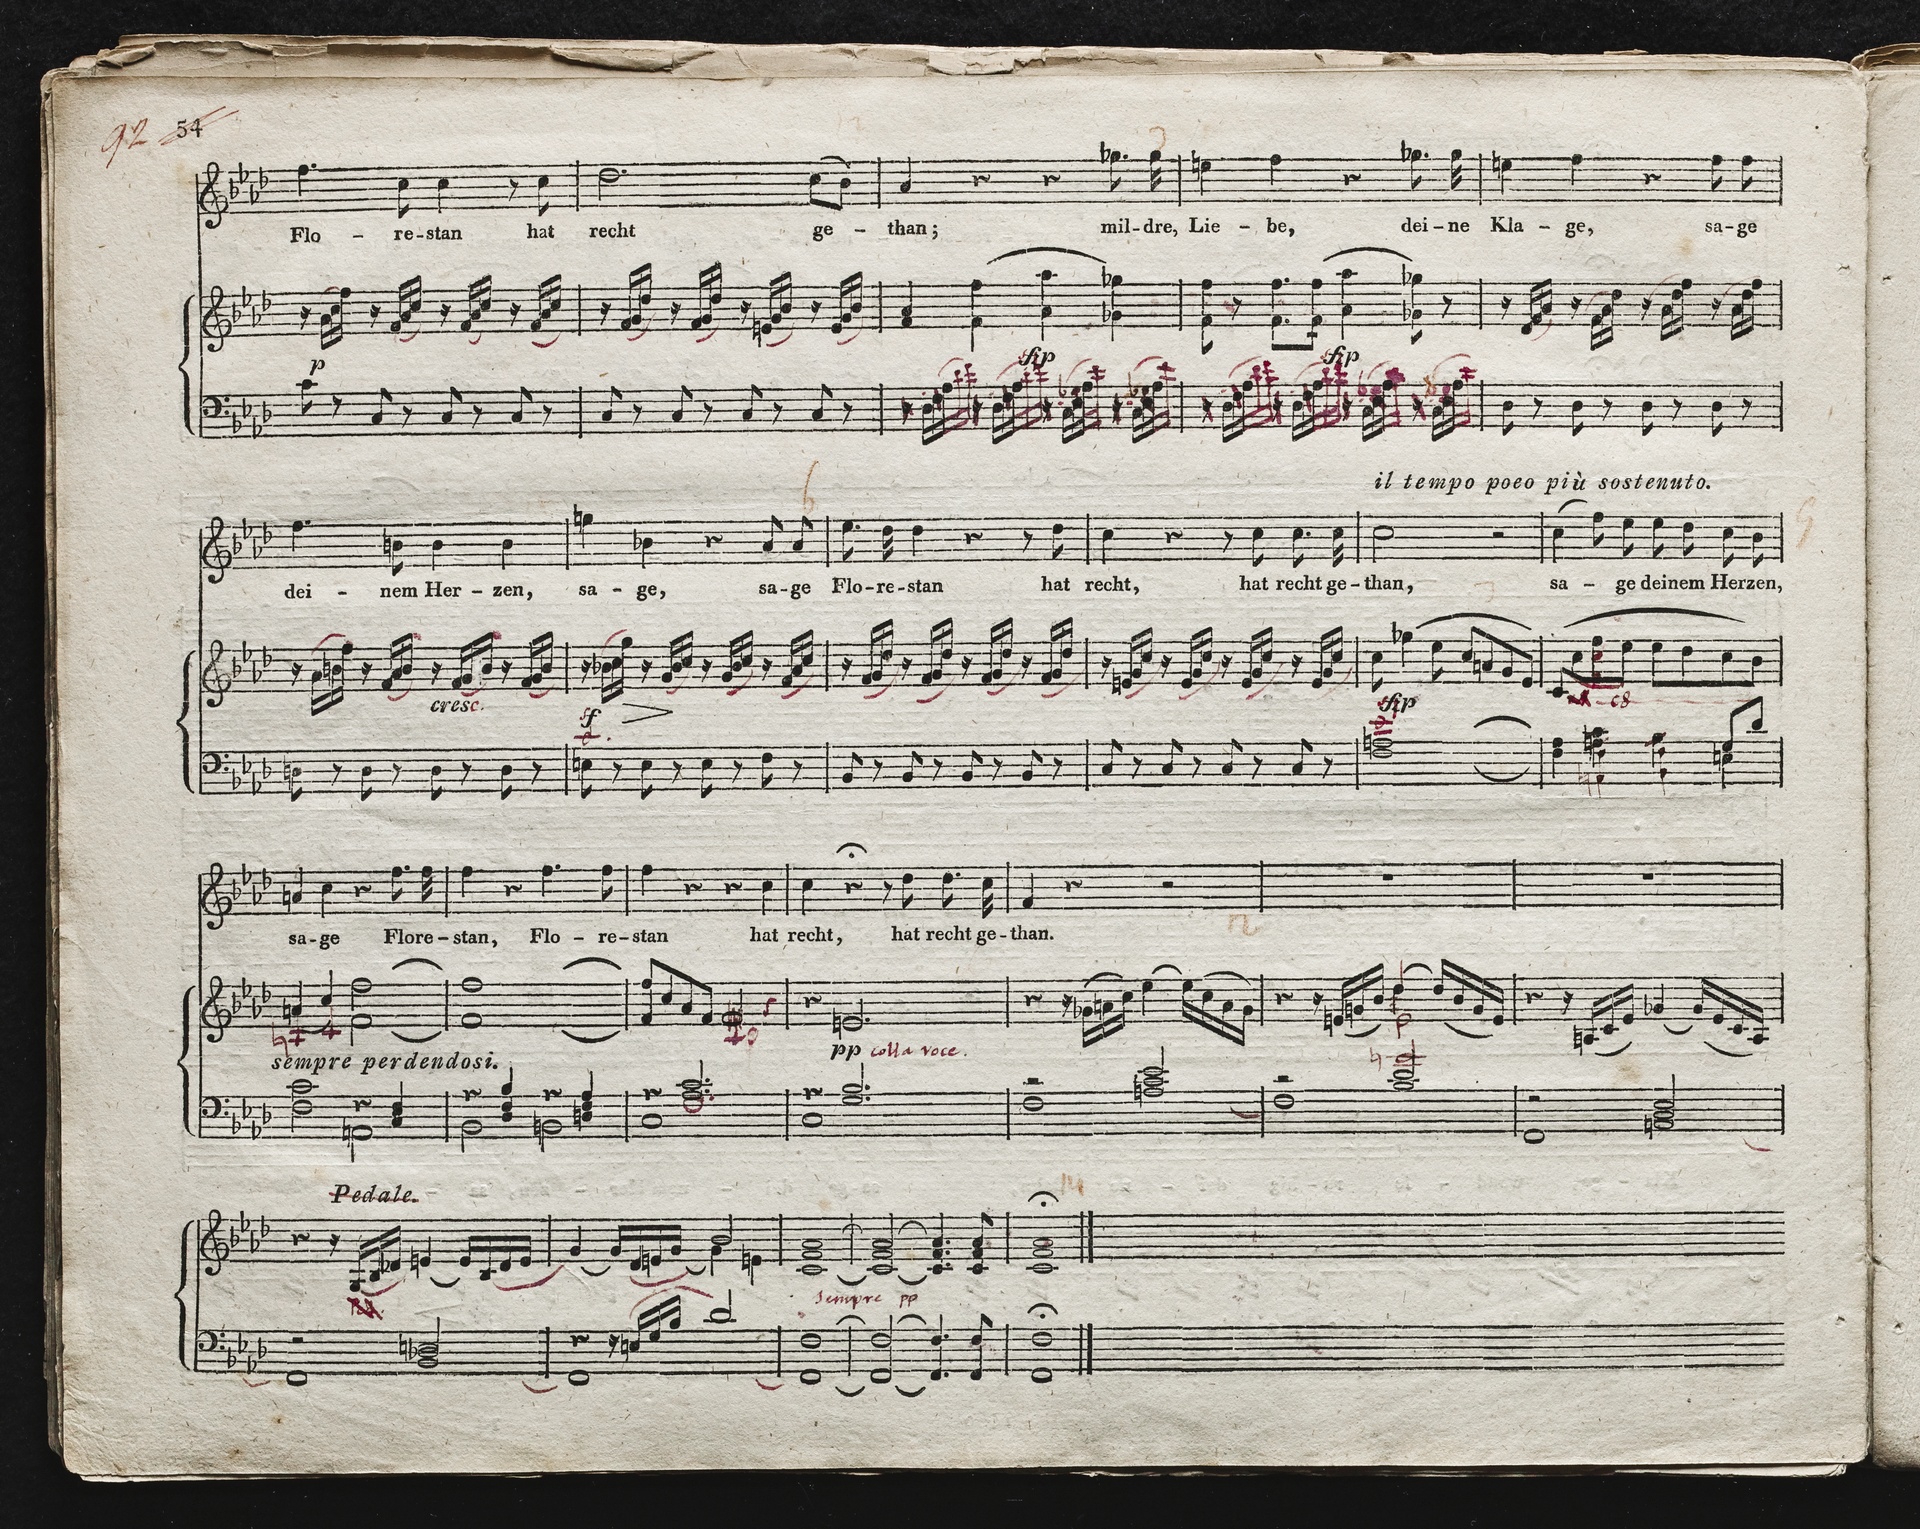 92 54
Flo – re-stan hat recht ge – than; mil-dre, Lie – be, dei-ne Kla – ge, sa-ge
p
fp fp
il tempo poeo più sostenuto.
dei – nem Her – zen, sa – ge, sa-ge Flo-re-stan hat recht, hat recht ge-than, sa – ge deinem Herzen,
cresc. sf fp
sa-ge Flore-stan, Flo – re-stan hat recht, hat recht ge-than.
sempre perdendosi. pp colla voce.
Pedale.
sempre pp